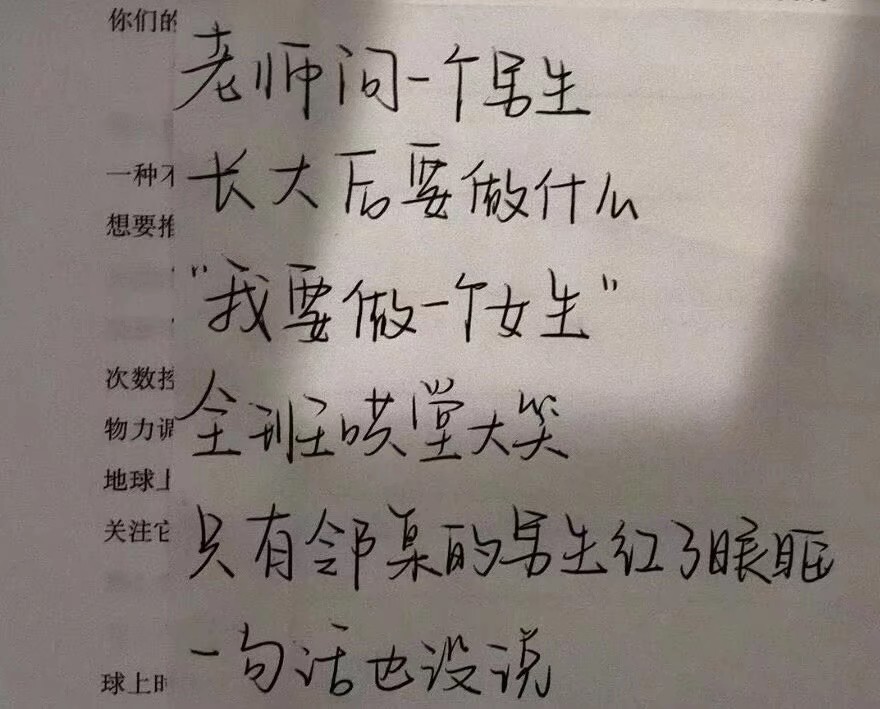 你们的
老师问一个男生
一种不
长大后要做什么
想要推
"我要做一个女生"
次数授
全班哄堂大笑
物力调
地球上
关注它
只有邻桌的男生红了眼眶
一句话也没说
球上时